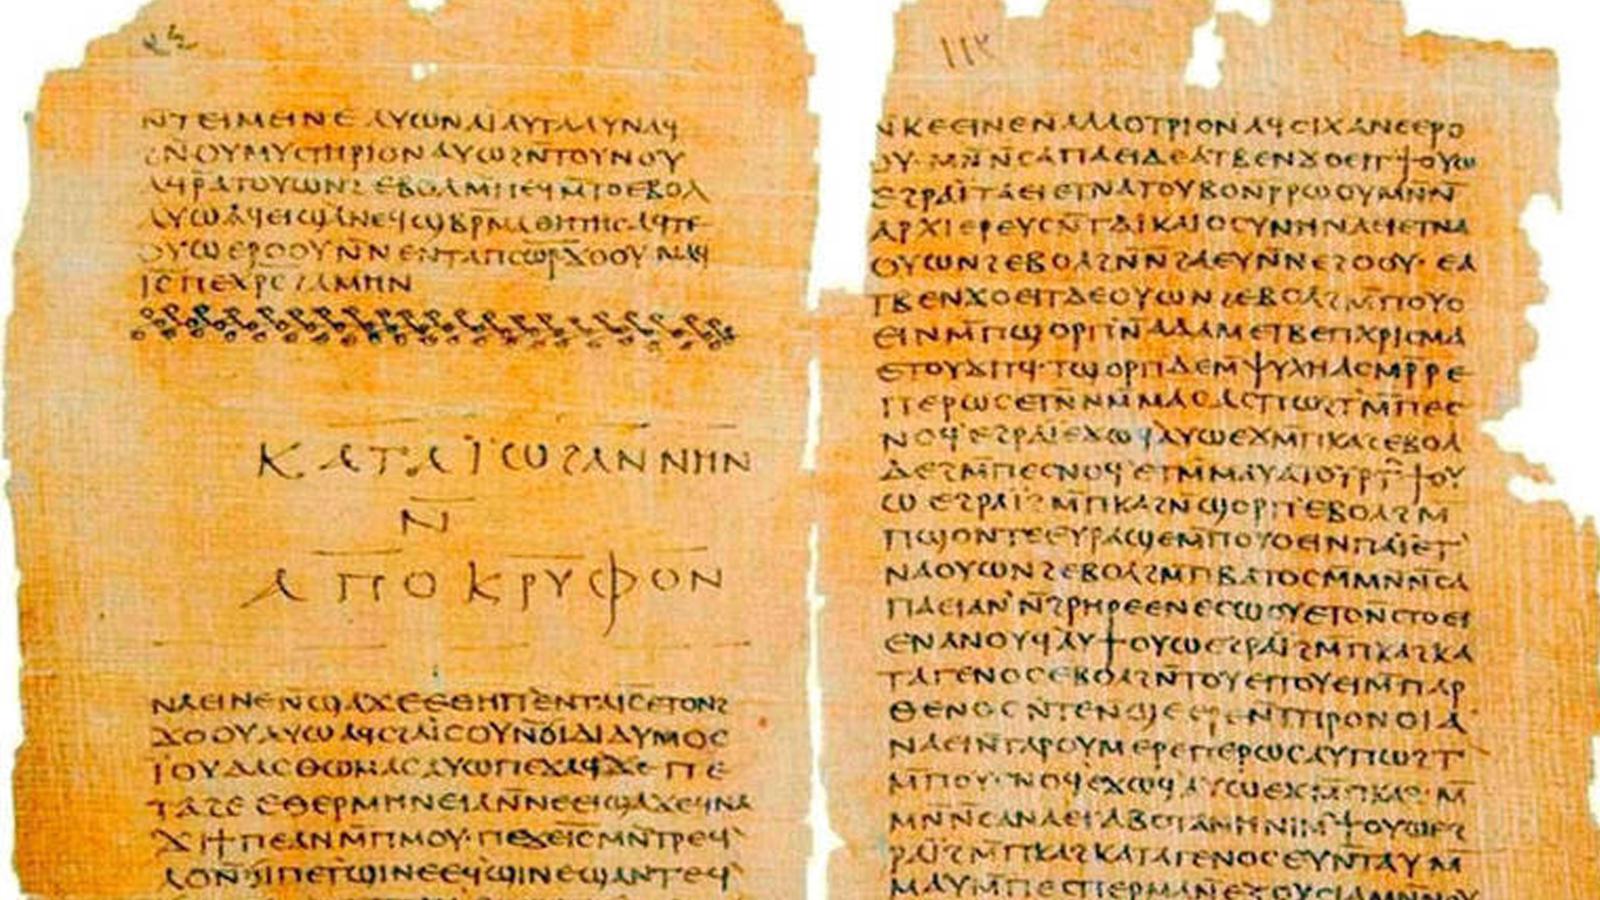 ⲛ̄ⲧⲉⲓⲙⲉⲓⲛⲉ ⲁⲩⲱ ⲛⲁⲓ̈ ⲁⲩⲧⲁⲁⲩ ⲛⲁϥ
ϩⲛ̄ ⲟⲩⲙⲩⲥⲧⲏⲣⲓⲟⲛ ⲁⲩⲱ ϩⲛ̄ ⲧⲟⲩⲛⲟⲩ
ⲁϥⲣ̄ ⲁⲧⲟⲩⲱⲛϩ ⲉⲃⲟⲗ ⲙ̄ⲡⲉϥⲙ̄ⲧⲟ ⲉⲃⲟⲗ
ⲁⲩⲱ ⲁϥⲉⲓ ϣⲁ ⲛⲉϥϣⲃⲣ̄ⲙⲁⲑⲏⲧⲏⲥ ⲁϥⲧⲉ
ⲟⲩⲱ ⲉⲣⲟⲟⲩ ⲛ̄ⲛⲉⲛⲧⲁ ⲡⲥⲱ̅ⲣ̅ ϫⲟⲟⲩ ⲛⲁϥ
ⲓ̅ⲥ̅ ⲡⲉⲭ̅ⲣ̅ⲥ̅ ϩⲁⲙⲏⲛ
ⲕⲁⲧⲁ ⲓ̈ⲱϩⲁⲛⲛⲏⲛ
ⲛ̄
ⲁⲡⲟⲕⲣⲩⲫⲟⲛ
ⲛⲁⲉⲓ ⲛⲉ ⲛ̄ϣⲁϫⲉ ⲉⲑⲏⲡ ⲉⲛⲧⲁ ⲓ̅ⲥ̅ ⲉⲧⲟⲛϩ
ϫⲟⲟⲩ ⲁⲩⲱ ⲁϥⲥϩⲁⲓ̈ⲥⲟⲩ ⲛ̄ϭⲓ ⲇⲓⲇⲩⲙⲟⲥ
ⲓ̈ⲟⲩⲇⲁⲥ ⲑⲱⲙⲁⲥ ⲁⲩⲱ ⲡⲉϫⲁϥ ϫⲉ ⲡⲉ
ⲧⲁϩⲉ ⲉⲑⲉⲣⲙⲏⲛⲉⲓⲁ ⲛ̄ⲛⲉⲉⲓϣⲁϫⲉ ϥⲛⲁ
ϫⲓ ϯⲡⲉ ⲁⲛ ⲙ̄ⲡⲙⲟⲩ ⲡⲉϫⲉ ⲓ̅ⲥ̅ ⲙⲛ̄ⲧⲣⲉϥ
ⲗⲟ ⲛ̄ϭⲓ ⲡⲉⲧϣⲓⲛⲉ ⲉϥϣⲓⲛⲉ ϣⲁⲛⲧⲉϥ
ⲛ̄ⲕⲉⲉⲓⲛⲉ ⲛ̄ⲁⲗⲗⲟⲧⲣⲓⲟⲛ ⲁϥⲥⲓⲭⲁⲛⲉ ⲉⲣⲟ
ⲟⲩ· ⲙⲛ̄ⲛ̄ⲥⲁ ⲡⲁⲉⲓ ⲇⲉ ⲁⲧⲃⲉⲛϫⲟⲉⲓⲧ ϯⲟⲩⲱ
ⲉϩⲣⲁⲓ̈ ⲧⲁⲉⲓ ⲉⲧⲛⲁⲧⲟⲩⲃⲟ ⲛ̄ⲣ̄ⲣⲱⲟⲩ ⲙⲛ̄ ⲛ̄
ⲁⲣⲭⲓⲉⲣⲉⲩⲥ ⲛ̄ⲧⲇⲓⲕⲁⲓⲟⲥⲩⲛⲏ ⲛⲁⲉⲓ ⲉⲧⲛⲁ
ⲟⲩⲱⲛϩ ⲉⲃⲟⲗ ϩⲛ̄ ⲛ̄ϩⲁⲉⲩ ⲛ̄ⲛⲉϩⲟⲟⲩ· ⲉⲁ
ⲧⲃⲉⲛϫⲟⲉⲓⲧ ⲇⲉ ⲟⲩⲱⲛϩ ⲉⲃⲟⲗ ϩⲙ̄ ⲡⲟⲩⲟ
ⲉⲓⲛ ⲙ̄ⲡϣⲟⲣⲡ ⲛ̄ⲁⲇⲁⲙ ⲉⲧⲃⲉ ⲡⲭⲣⲓⲥⲙⲁ
ⲉⲧⲟⲩϫⲓⲧϥ· ⲧϣⲟⲣⲡ ⲇⲉ ⲙ̄ⲯⲩⲭⲏ ⲁⲥⲙ̄ⲣ̄ⲣⲉ
ⲡⲉⲣⲱⲥ ⲉⲧⲛⲙ̄ⲙⲁⲥ ⲁⲥⲡⲱϩⲧ ⲙ̄ⲡⲉⲥ
ⲛⲟϥ ⲉϩⲣⲁⲓ̈ ⲉϫⲱϥ ⲁⲩⲱ ⲉϫⲙ̄ ⲡⲕⲁϩ ⲉⲃⲟⲗ
ⲇⲉ ϩⲙ̄ ⲡⲉⲥⲛⲟϥ ⲉⲧⲙ̄ⲙⲁⲩ ⲁⲡⲟⲩⲣⲧ ϯⲟⲩ
ⲱ ⲉϩⲣⲁⲓ̈ ϩⲙ̄ ⲡⲕⲁϩ ⲛ̄ϣⲟⲣⲡ ⲉⲃⲟⲗ ϩⲙ̄
ⲡϣⲟⲛⲧⲉ ⲉⲩⲣⲁϣⲉ ⲙ̄ⲡⲟⲩⲟⲉⲓⲛ ⲡⲁⲓ̈ ⲉⲧ
ⲛⲁⲟⲩⲱⲛϩ ⲉⲃⲟⲗ ϩⲙ̄ ⲡⲃⲁⲧⲟⲥ ⲙⲛ̄ⲛ̄ⲥⲁ
ⲡⲁⲉⲓ ⲁⲛ̄ϩⲣⲏⲣⲉ ⲉⲛⲉⲥⲱⲟⲩ ⲉⲧⲟⲛ ⲥⲧⲟⲉⲓ
ⲉⲛⲁⲛⲟⲩϥ ⲁⲩϯⲟⲩⲱ ⲉϩⲣⲁⲓ̈ ϩⲙ̄ ⲡⲕⲁϩ ⲕⲁ
ⲧⲁ ⲅⲉⲛⲟⲥ ⲉⲃⲟⲗ ϩⲛ̄ ⲧⲟⲩⲉⲓ ⲧⲟⲩⲉⲓ ⲙ̄ⲡⲁⲣ
ⲑⲉⲛⲟⲥ ⲛ̄ⲧⲉ ⲛ̄ϣⲉⲉⲣⲉ ⲛ̄ⲧⲡⲣⲟⲛⲟⲓⲁ
ⲛⲁⲉⲓ ⲛ̄ⲧⲁⲣⲟⲩⲙⲉⲣⲉ ⲡⲉⲣⲱⲥ ⲁⲩⲡⲱϩⲧ
ⲙ̄ⲡⲟⲩⲥⲛⲟϥ ⲉϫⲱϥ ⲁⲩⲱ ⲉϫⲙ̄ ⲡⲕⲁϩ· ⲙ̄
ⲙⲛ̄ⲛ̄ⲥⲁ ⲛⲁⲉⲓ ⲁⲃⲟⲧⲁⲛⲏ ⲛⲓⲙ ϯⲟⲩⲱ ⲉϩ
ⲣⲁⲓ̈ ϩⲙ̄ ⲡⲕⲁϩ ⲕⲁⲧⲁ ⲅⲉⲛⲟⲥ ⲉⲩⲛ̄ⲧⲁⲩ ⲙ̄
ⲙⲁⲩ ⲙ̄ⲡⲉⲥⲡⲉⲣⲙⲁ ⲛ̄ⲉⲝⲟⲩⲥⲓⲁ ⲙⲛ̄ ⲛⲟⲩ